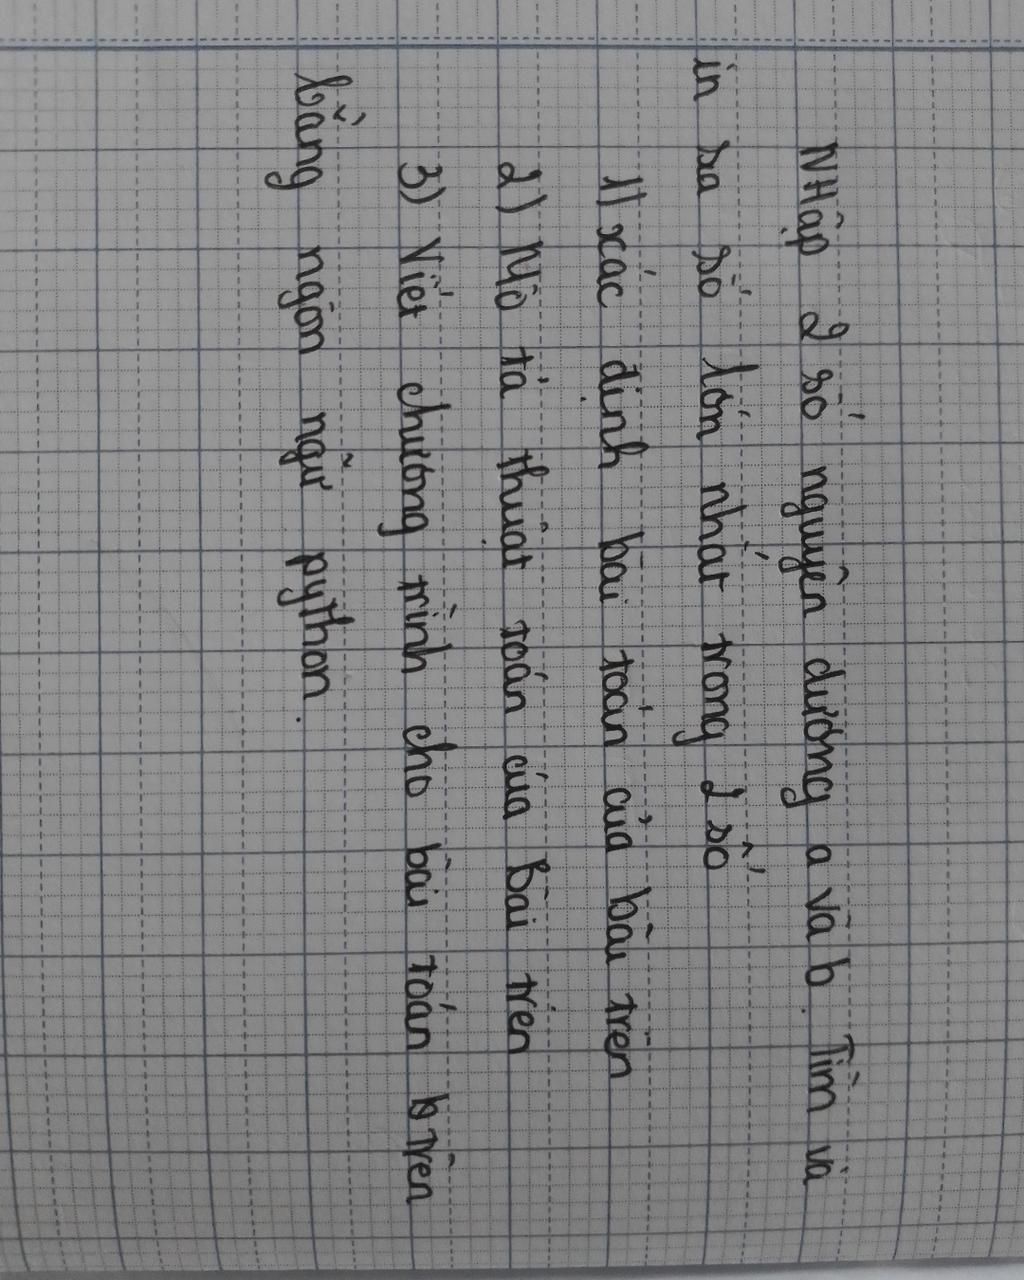 NHập 2 số nguyên dương a và b. Tìm và
in ra số lớn nhất trong 2 số
1) xác định bài toán của bài trên
2) Mô tả thuật toán của bài trên
3) Viết chương trình cho bài toán trên
bằng ngôn ngữ python.